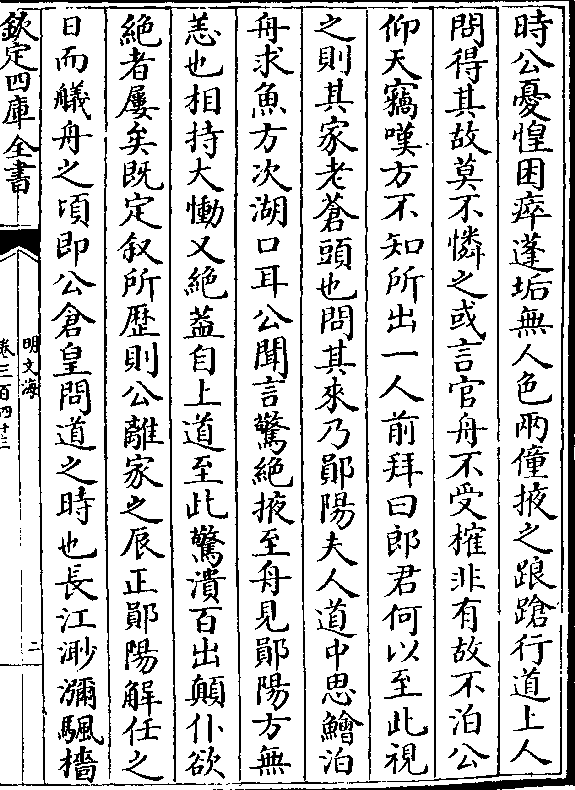 時公憂惶困瘁蓬垢無人色兩僮掖之踉蹌行道上人
問得其故莫不憐之或言官舟不受榷非有故不泊公
仰天竊嘆方不知所出一人前拜曰郎君何以至此視
之則其家老蒼頭也問其來乃鄖陽夫人道中思鱠泊
舟求魚方次湖口耳公聞言驚絶掖至舟見鄖陽方無
恙也相持大慟又絶葢自上道至此驚潰百出顛仆欲
絶者屢矣既定叙所歴則公離家之辰正鄖陽解任之
日而艤舟之頃即公倉皇問道之時也長江渺瀰颿檣
欽定四庫全書
明文海
卷三百四十三
二